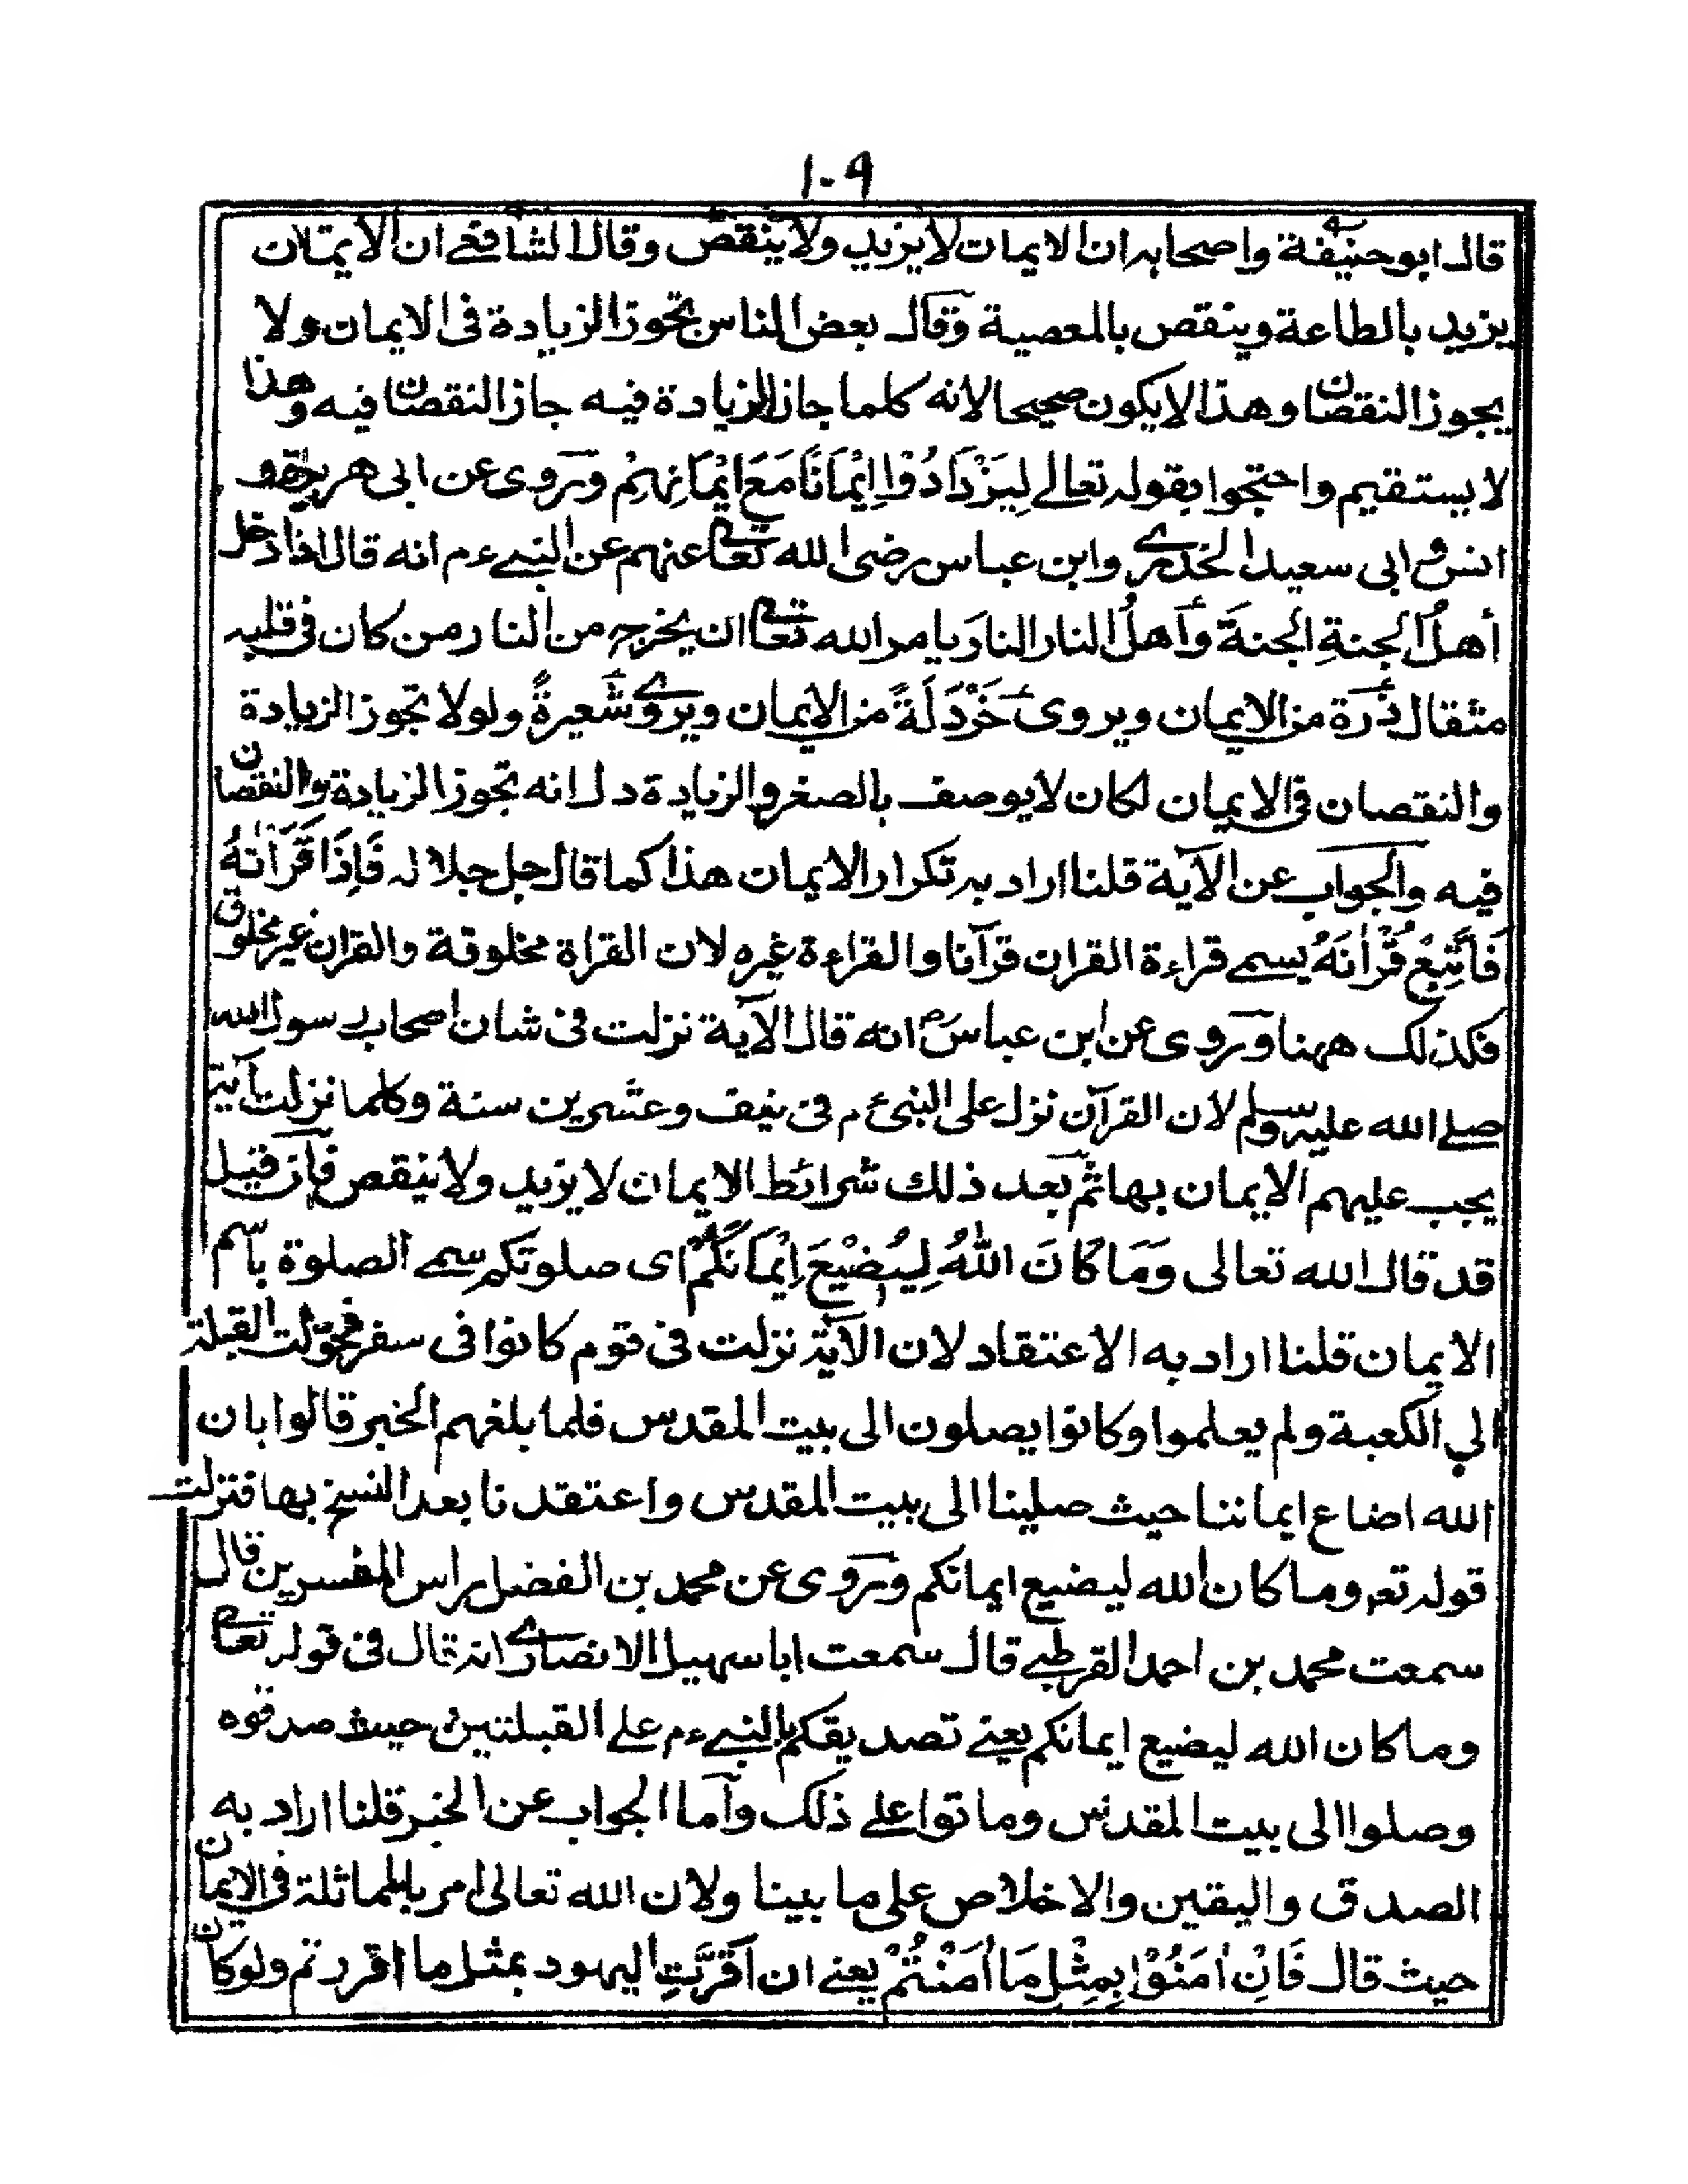 ۱۰۹
قال ابو حنيفة واصحابہ ان الايمان لا يزيد ولا ينقص وقال الشافعے ان الايمان
يزيد بالطاعة وينقص بالمعصية وقال بعض الناس تجوز الزيادة فى الايمان ولا
يجوز النقصان وهذا لا يكون صحيحا لانه كلما جاز الزيادة فيه جاز النقصان فيه وهذا
لا يستقيم واحتجوا بقولہ تعالے لِيَزْدَادُوْا اِيْمَانًا مَعَ اِيْمَانِهِمْ وروى عن ابى هريرة و
انس و ابى سعيد الخدرے وابن عباس رضى الله تعالے عنهم عن النبے ءم انه قال اذا دخل
أهلُ الجنةِ الجنةَ وأهلُ النار النارَ يا مر الله تعالے ان يخرج من النار من كان فى قلبہ
مثقال ذرة من الايمان ويروى خَرْدَلَةً من الايمان ويروے شعيرةً ولولا تجوز الزيادة
والنقصان فى الايمان لكان لا يوصف بالصغر والزيادة دل انه تجوز الزيادة والنقصان
فيه والجواب عن الآية قلنا اراد بہ تكرار الايمان هذا كما قال جل جلالہ فَاِذَا قَرَأْنٰهُ
فَاتَّبِعْ قُرْاٰنَهُ يسمے قراءة القران قرآنا والقراءة غيره لان القراة مخلوقة والقران غير مخلوق
فكذلك ههنا وروى عن ابن عباس رض انه قال الآية نزلت فى شان اصحاب رسول الله
صلے الله عليہ وسلم لان القرآن نزل على النبى ءم فى نيف وعشرين سنة وكلما نزلت آية
يجب عليهم الايمان بها ثم بعد ذلك شرائط الايمان لا يزيد ولا ينقص فان قيل
قد قال الله تعالى وَمَا كَانَ اللّٰهُ لِيُضِيْعَ اِيْمَانَكُمْ اى صلوتكم سمے الصلوة باسم
الايمان قلنا اراد به الاعتقاد لان الآية نزلت فى قوم كانوا فى سفر فحولت القبلة
الى الكعبة ولم يعلموا وكانوا يصلون الى بيت المقدس فلما بلغهم الخبر قالوا بان
الله اضاع ايماننا حيث صلينا الى بيت المقدس واعتقدنا بعد النسخ بها فنزلت
قولہ تعہ وما كان الله ليضيع ايمانكم وروى عن محمد بن الفضل براس المفسرين قال
سمعت محمد بن احمد القرطبے قال سمعت ابا سهيل الانصارے انہ قال فى قولہ تعالے
وما كان الله ليضيع ايمانكم يعنے تصديقكم بالنبے ءم علے القبلتين حيث صدقوه
وصلوا الى بيت المقدس وماتوا علے ذلك وأما الجواب عن الخبر قلنا اراد به
الصدق واليقين والاخلاص على ما بينا ولان الله تعالى امر بالمماثلة فى الايمان
حيث قال فَاِنْ اٰمَنُوْا بِمِثْلِ مَا اٰمَنْتُمْ يعنے ان اَقَرَّتِ اليهود بمثل ما اقررتم ولو كان